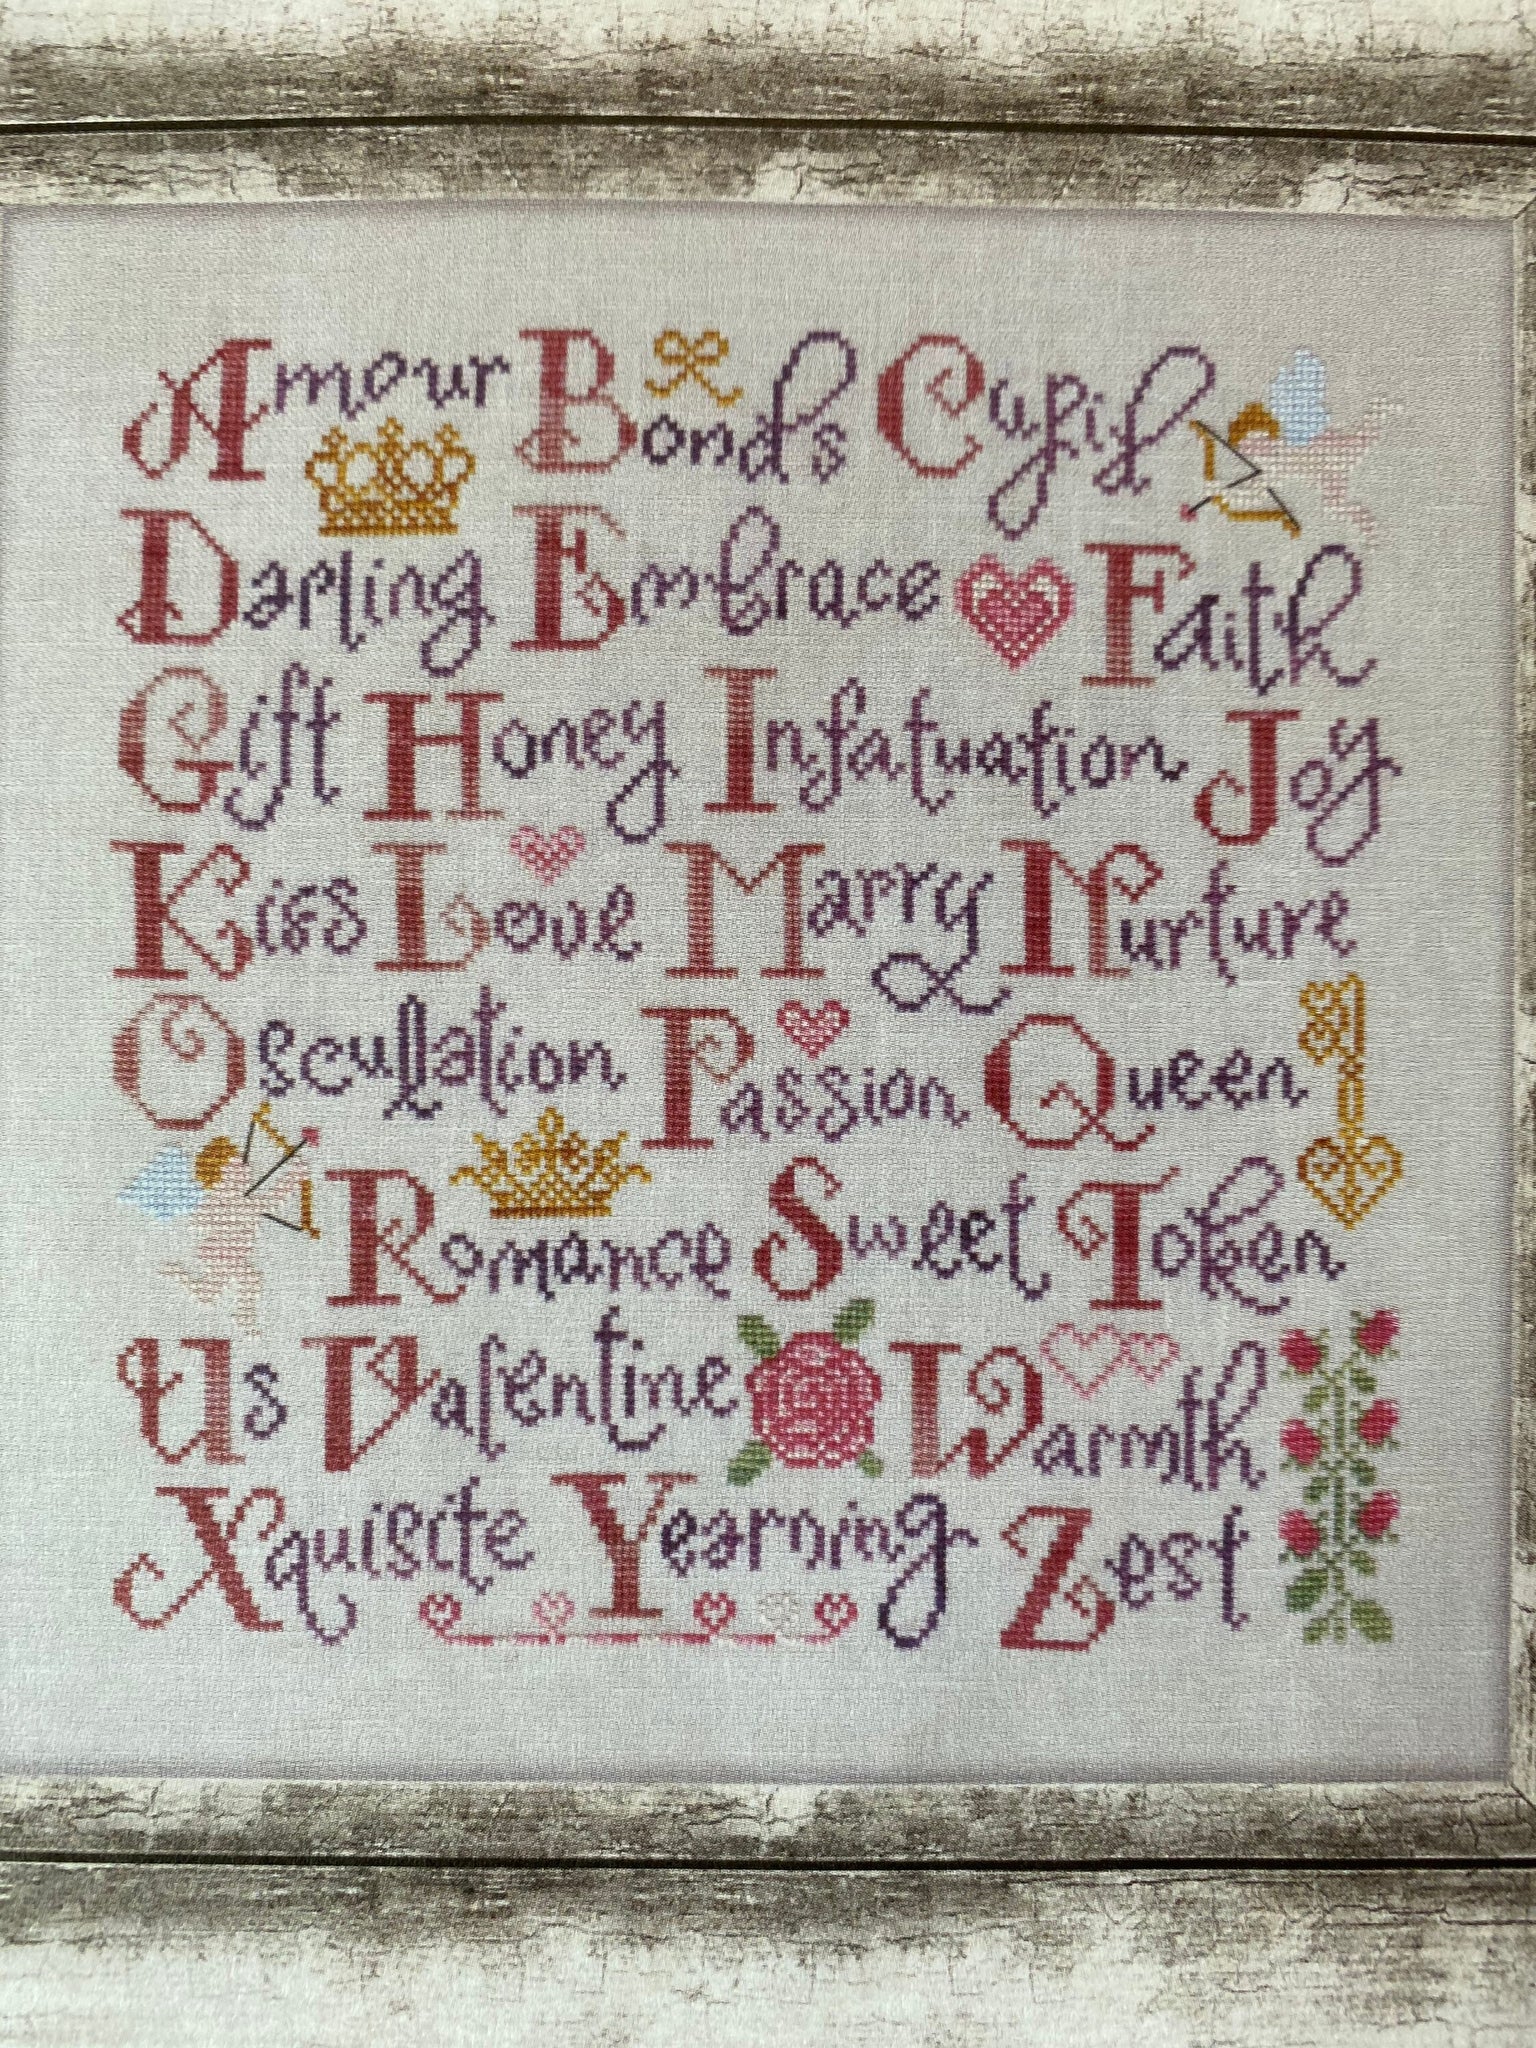 Amour Bonds Cupid
Darling Embrace Faith
Gift Honey Infatuation Joy
Kiss Love Marry Nurture
Osculation Passion Queen
Romance Sweet Token
Us Valentine Warmth
Xquisite Yearning Zest